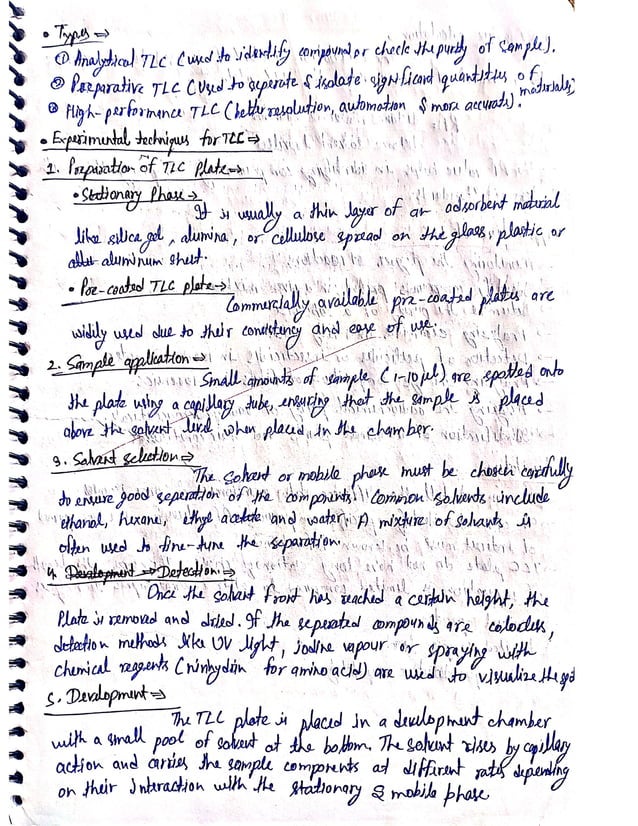 • Types ⇒
① Analytical TLC (used to identify compound or check the purity of sample).
② Preparative TLC (Used to seperate & isolate significant quantities of materials;
③ High-performance TLC (better resolution, automation & more accurate).
• Experimental techniques for TLC ⇒
1. Preparation of TLC Plate ⇒
• Stationary Phase ⇒
It is usually a thin layer of an adsorbent material
like silica gel, alumina, or cellulose spread on the glass, plastic or
aluminum sheet.
• Pre-coated TLC plate →
Commercially available pre-coated plates are
widily used due to their consistency and ease of use.
2. Sample application ⇒
Small amounts of sample (1-10 μl) are spotted onto
the plate using a capillary tube, ensuring that the sample is placed
above the solvent level when placed in the chamber.
3. Solvent selection ⇒
The solvent or mobile phase must be chosen carefully
to ensure good seperation of the components. Common solvents include
ethanol, hexane, ethyl acetate and water. A mixture of solvants is
often used to fine-tune the separation.
4. Development → Detection ⇒
Once the solvent front has reached a certain height, the
Plate is removed and dried. If the seperated compounds are colorless,
detection methods like UV light, iodine vapour or spraying with
chemical reagents (ninhydrin for amino acid) are used to visualize the
5. Development ⇒
The TLC plate is placed in a development chamber
with a small pool of solvent at the bottom. The solvent rises by capillary
action and carries the sample components at different rates depending
on their interaction with the stationary & mobile phase